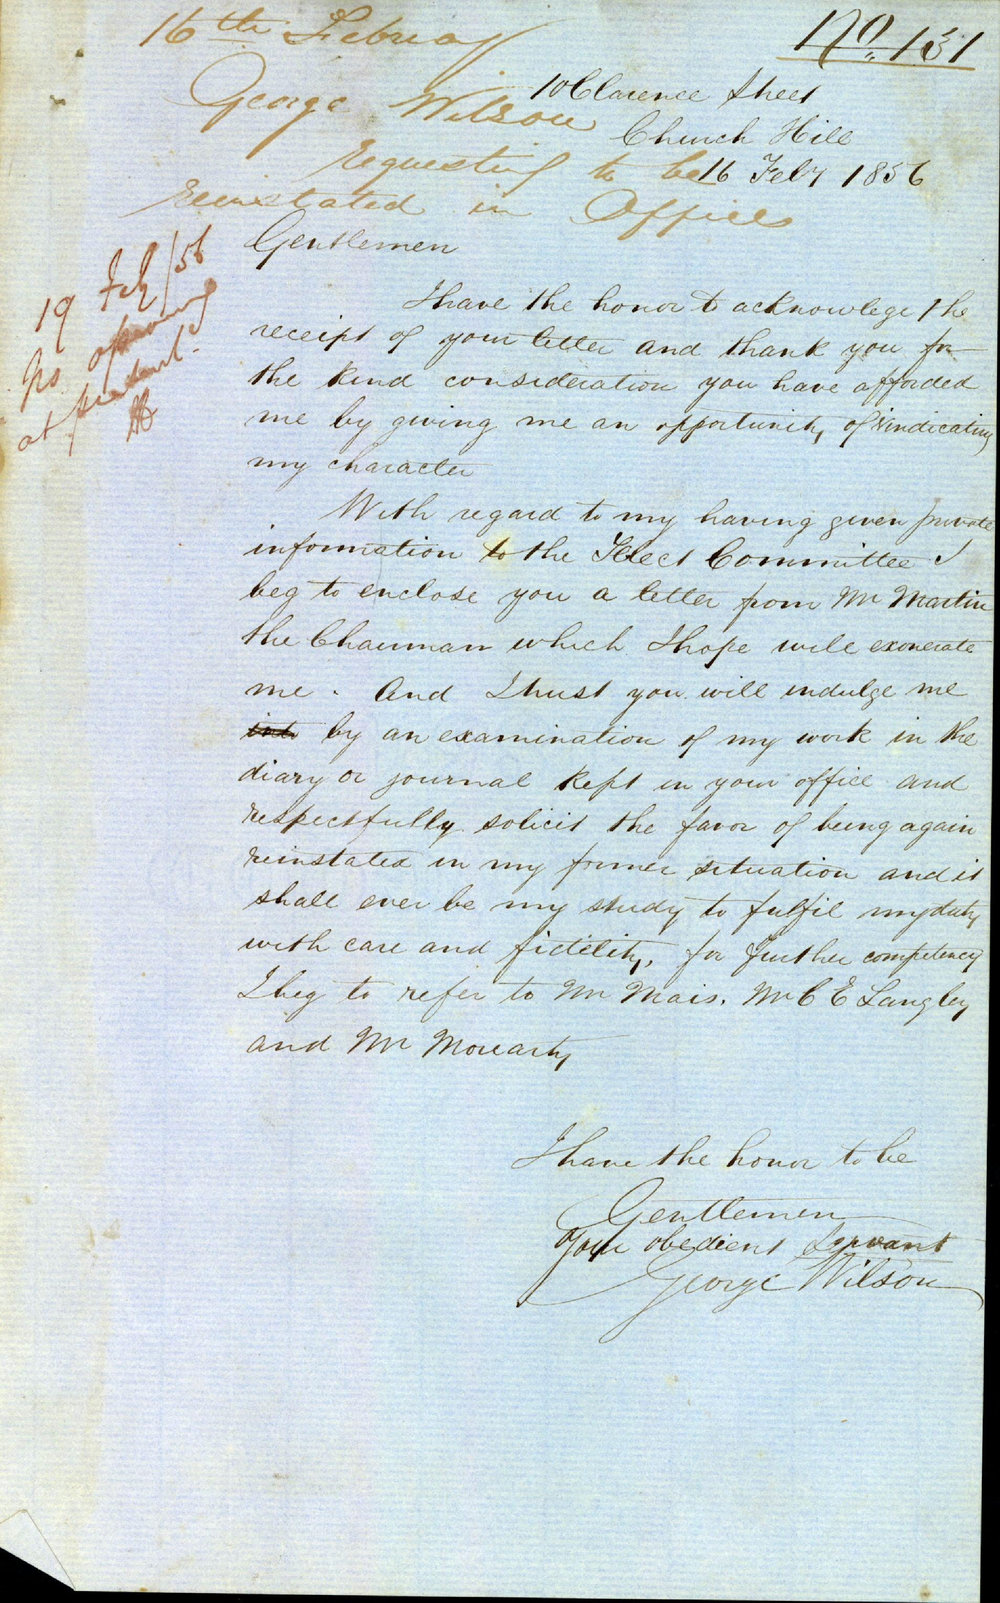 No. 131
16th February
George Wilson
requesting to be
reinstated in Office
10 Clarence Street
Church Hill
16 Feby 1856
19 Feb/56
No opening
at present
Gentlemen
I have the honor to acknowlege the
receipt of your letter and thank you for
the kind consideration you have afforded
me by giving me an opportunity of vindicating
my character
With regard to my having given private
information to the Select Committee I
beg to enclose you a letter from Mr Martin
the Chairman which I hope will exonerate
me. And I trust you will indulge me
by an examination of my work in the
diary or journal kept in your office and
respectfully solicit the favor of being again
reinstated in my former situation and it
shall ever be my study to fulfil my duty
with care and fidelity, for further competency
I beg to refer to Mr Mais. Mr C E Langley
and Mr Moriarty
I have the honor to be
Gentlemen
Your obedient Servant
George Wilson